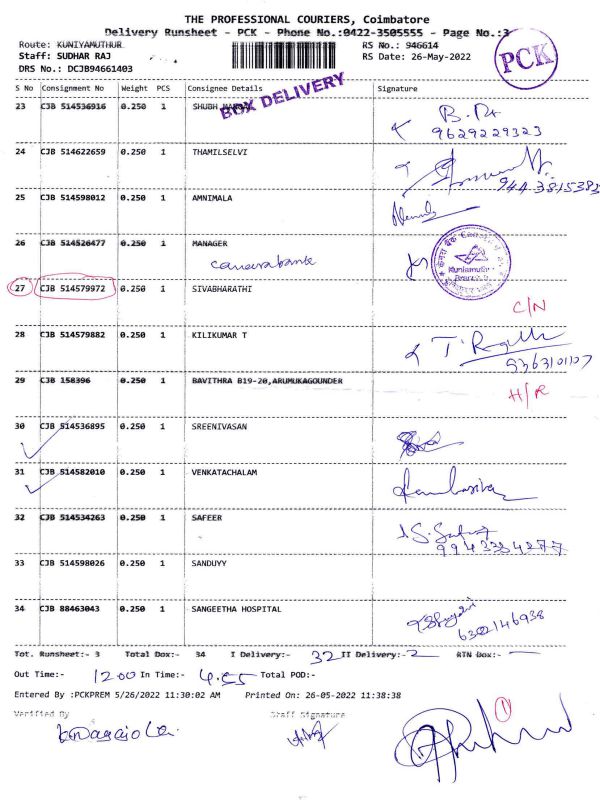 THE PROFESSIONAL COURIERS, Coimbatore
Delivery Runsheet - PCK - Phone No.:0422-3505555 - Page No.:3
Route: KUNIYAMUTHUR
RS No.: 946614
Staff: SUDHAR RAJ
RS Date: 26-May-2022
DRS No.: DCJB94661403
PCK
BOX DELIVERY
S No Consignment No Weight PCS Consignee Details Signature
23 CJB 514536916 0.250 1 SHUBH
9629229323
24 CJB 514622659 0.250 1 THAMILSELVI
944 3815383
25 CJB 514598012 0.250 1 AMNIMALA
26 CJB 514526477 0.250 1 MANAGER
canarabank
Kuniamuthur
27 CJB 514579972 0.250 1 SIVABHARATHI
C/N
28 CJB 514579882 0.250 1 KILIKUMAR T
9363101107
29 CJB 158396 0.250 1 BAVITHRA B19-20,ARUMUKAGOUNDER
H/R
30 CJB 514536895 0.250 1 SREENIVASAN
31 CJB 514582010 0.250 1 VENKATACHALAM
32 CJB 514534263 0.250 1 SAFEER
9943334277
33 CJB 514598026 0.250 1 SANDUYY
34 CJB 88463043 0.250 1 SANGEETHA HOSPITAL
6302146938
Tot. Runsheet:- 3 Total Dox:- 34 I Delivery:- 32 II Delivery:- 2 RTN Dox:-
Out Time:- 1200 In Time:- 4.55 Total POD:-
Entered By :PCKPREM 5/26/2022 11:30:02 AM Printed On: 26-05-2022 11:38:38
Verified By Staff Signature
1